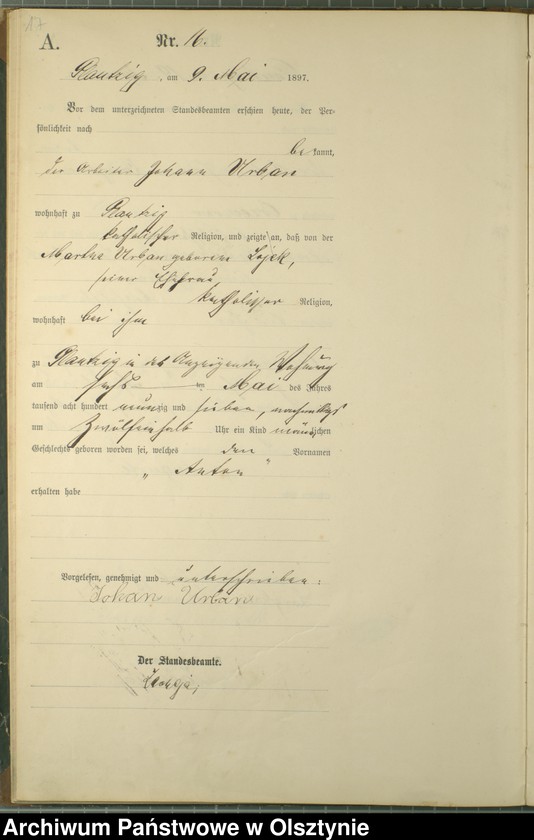 17
A.
Nr. 16.
Plautzig, am 9. Mai 1897.
Vor dem unterzeichneten Standesbeamten erschien heute, der Per-
sönlichkeit nach
be kannt,
der Arbeiter Johann Urban
wohnhaft zu Plautzig
katholischer Religion, und zeigte an, daß von der
Martha Urban geborene Lojek,
seiner Ehefrau
katholischer Religion,
wohnhaft bei ihm
zu Plautzig in des Anzeigenden Wohnung
am sechsten Mai des Jahres
tausend acht hundert neunzig und sieben, nachmittags
um zwölfeinhalb Uhr ein Kind männlichen
Geschlechts geboren worden sei, welches den Vornamen
„ Anton "
erhalten habe
Vorgelesen, genehmigt und unterschrieben:
Johan Urban
Der Standesbeamte.
Archiwum Państwowe w Olsztynie